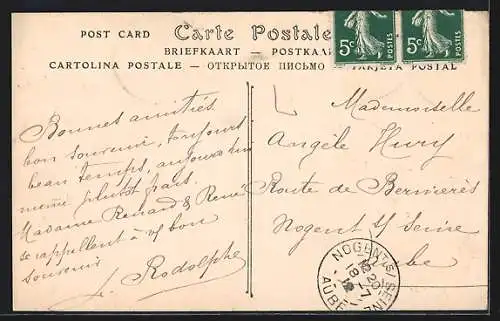 POST CARD Carte Postale
BRIEFKAART — POSTKA
CARTOLINA POSTALE — ОТКРЫТОЕ ПИСЬМО — TARJETA POSTAL
5c POSTES 5c POSTES
Bonnes amitiés
bon souvenir, toujours
beau temps, aujourd'hui
même plutôt frais.
Madame Renard & René
se rappellent à vs bon
souvenir
Rodolphe
Mademoiselle
Angèle
Route de Bernières
Nogent s/ Seine
Aube
NOGENT-S-SEINE
12 20
18 -7
AUBE